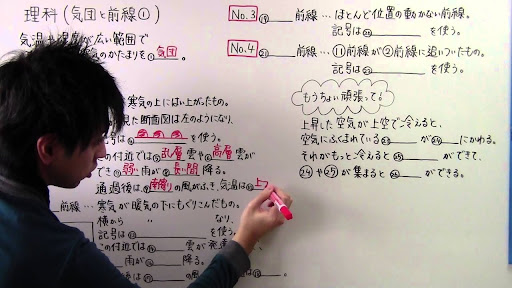 理科(気団と前線①)
気温や湿度が広い範囲で
気のかたまりを①気団。
寒気の上にはい上がったもの。
見た断面図は左のようになり、
記号は を使う。
の付近では⑤乱層雲や⑥高層雲が
でき⑦弱い雨が⑧長い間降る。
通過後は⑨南寄りの風がふき、気温は⑩上
前線…寒気が暖気の下にもぐりこんだもの。
横から 〃 なり、
記号は を使う。
この付近では 雲が発達
雨が 降る。
の風が
No.3 ⑲ 前線…ほとんど位置の動かない前線。
記号は⑳ を使う。
No.4 ㉑ 前線…⑪前線が②前線に追いついたもの。
記号は㉒ を使う。
もうちょい頑張って!
上昇した空気が上空で冷えると、
空気にふくまれている㉓ が㉔ にかわる。
それがもっと冷えると㉕ ができて、
㉔や㉕が集まると㉖ ができる。